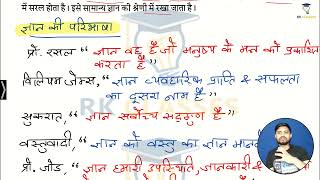 में सरल होता है। इसे सामान्य ज्ञान की श्रेणी में रखा जाता है।
ज्ञान की परिभाषा
प्रो. रसल = "ज्ञान वह है जो मनुष्य के मन को प्रकाशित
करता है"
विलियम जेम्स, "ज्ञान व्यवहारिक प्राप्ति & सफलता
का दूसरा नाम है"
सुकरात, "ज्ञान सर्वोच्च सद्गुण है"
वस्तुवादी, "ज्ञान को वस्तु का ज्ञान मानते
प्रो. जोड, "ज्ञान हमारी उपस्थिति, जानकारी &